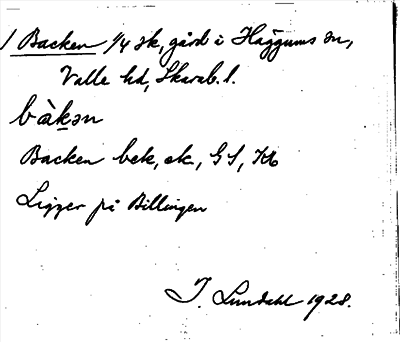 1 Backen 1/4 sk, gård i Häggums sn,
Valle hd, Skarab. l.
bàkən
Backen bek, ek, GS, Kk
Ligger på Billingen
I. Lundahl 1928.